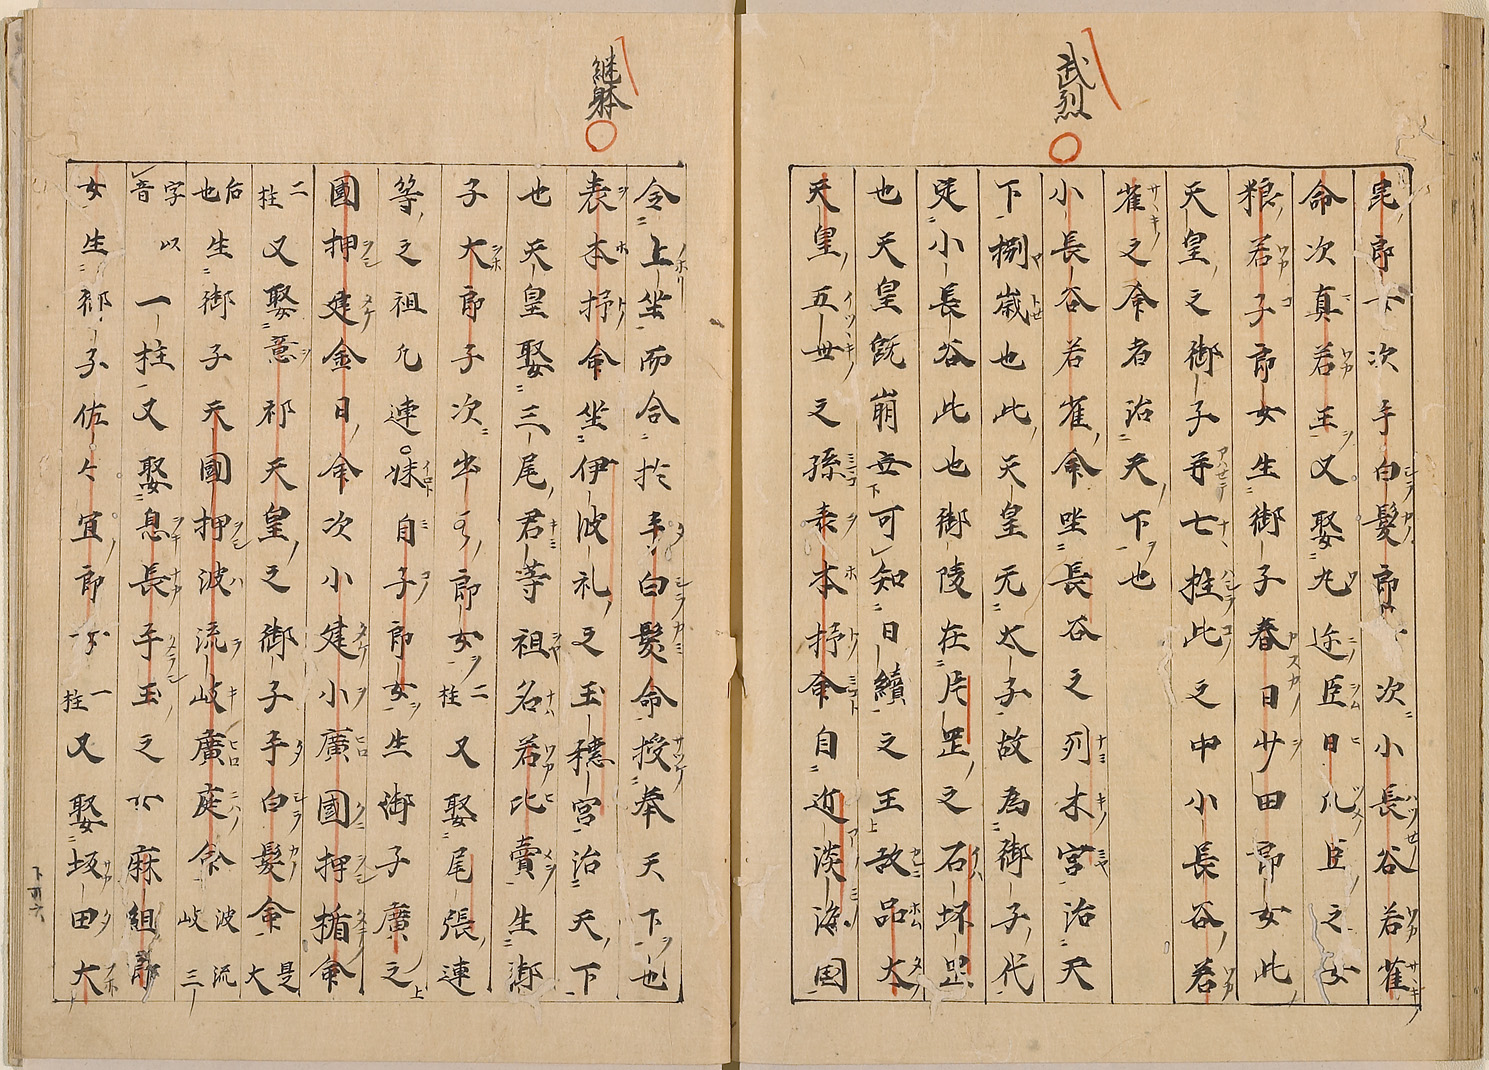 武烈
毛郎女次手白髪郎女次小長谷若雀
命次真若王又娶丸迩臣日爪臣之女
糠若子郎女生御子春日少田郎女此
天皇之御子并七柱此之中小長谷若
雀之命者治天下也
小長谷若雀命坐長谷之列木宮治天
下捌歳也此天皇无太子故為御子代
定小長谷此也御陵在片罡之石坏罡
也天皇既崩無可知日續之王故品太
天皇五世之孫袁本抒命自近淡海国
継躰
令上坐而合於手白髪命授奉天下也
袁本抒命坐伊波礼之玉穂宮治天下
也天皇娶三尾君等祖名若比賣生御
子大郎子次出雲郎女二柱又娶尾張連
等之祖凢連妹自子郎女生御子廣之
國押建金日命次小建小廣國押楯命
二柱又娶意祁天皇之御子手白髪命是大
后也生御子天國押波流岐廣庭命波流岐三
字以音一柱又娶息長手玉王之女麻組郎
女生御子佐々宜郎女一柱又娶坂田大